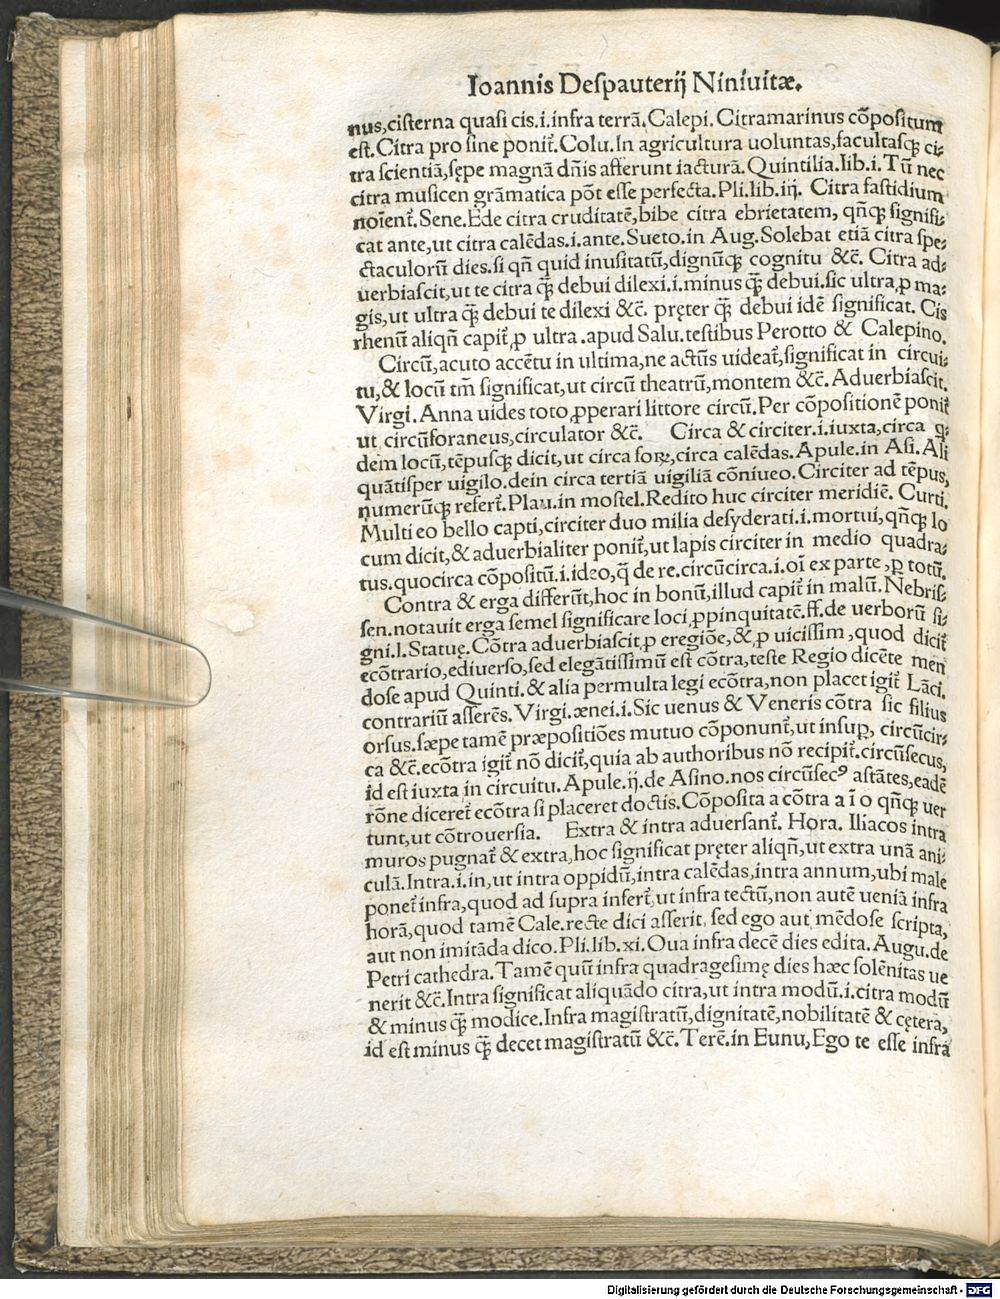 Ioannis Despauterij Niniuitæ.
nus,cisterna quasi cis.i.infra terrā.Calepi.Citramarinus cōpositum
est.Citra pro sine ponit᷑.Colu.In agricultura uoluntas,facultasq̧ ci-
tra scientiā,sępe magnā dn̄is afferunt iacturā.Quintilia.lib.i.Tū nec
citra musicen grāmatica pōt esse perfecta.Pli.lib.iij. Citra fastidium
noīent᷑.Sene.Ede citra cruditatē,bibe citra ebrietatem, qn̄q̧ signifi-
cat ante,ut citra calēdas.i.ante.Sueto.in Aug.Solebat etiā citra spe-
ctaculorū dies.si qn̄ quid inusitatū,dignūq̧ cognitu &c̄. Citra ad-
uerbiascit,ut te citra q̧̄ debui dilexi.i.minus q̧̄ debui.sic ultra,ꝓ ma-
gis,ut ultra q̧̄ debui te dilexi &c̄. pręter q̧̄ debui idē significat. Cis
rhenū aliqn̄ capit᷑,ꝓ ultra.apud Salu.testibus Perotto & Calepino.
Circū,acuto accētu in ultima,ne actūs uideat᷑,significat in circui-
tu,& locū tm̄ significat,ut circū theatrū,montem &c̄.Aduerbiascit.
Virgi.Anna uides toto ꝓperari littore circū.Per cōpositionē ponit᷑
ut circūforaneus,circulator &c̄. Circa & circiter.i.iuxta,circa q-
dem locū,tēpusq̧ dicit,ut circa foꝝ,circa calēdas.Apule.in Asi.Ali
quātisper uigilo.dein circa tertiā uigiliā cōniueo.Circiter ad tēpus,
numerūq̧ refert᷑.Plau.in mostel.Redito huc circiter meridiē. Curti.
Multi eo bello capti,circiter duo milia desyderati.i.mortui,qn̄q̧ lo
cum dicit,& aduerbialiter ponit᷑,ut lapis circiter in medio quadra-
tus.quocirca cōpositū.i.ideo,q̄ de re.circūcirca.i.oī ex parte,ꝑ totū.
Contra & erga differūt,hoc in bonū,illud capit᷑ in malū.Nebris-
sen.notauit erga semel significare loci,ꝓpinquitatē.ff.de uerborū si-
gni.l.Statuę.Cōtra aduerbiascit,ꝓ eregiōe,& ꝓ uicissim,quod dicit᷑
ecōtrario,ediuerso,sed elegātissimū est cōtra,teste Regio dicēte men
dose apud Quinti.& alia permulta legi ecōtra,non placet igit᷑ Lāci.
contrariū asserēs.Virgi.ænei.i.Sic uenus & Veneris cōtra sic filius
orsus.sæpe tamē præpositiōes mutuo cōponunt᷑,ut insuꝑ, circūcir-
ca &c̄.ecōtra igit᷑ nō dicit᷑,quia ab authoribus nō recipit᷑.circūsecus,
id est iuxta in circuitu.Apule.ij.de Asino.nos circūsecꝰ astātes,eadē
rōne diceret᷑ ecōtra si placeret doctis.Cōposita a cōtra a ī o qn̄q̧ uer
tunt,ut cōtrouersia. Extra & intra aduersant᷑. Hora. Iliacos intra
muros pugnat᷑ & extra,hoc significat pręter aliqn̄,ut extra unā ani-
culā.Intra.i.in,ut intra oppidū,intra calēdas,intra annum,ubi male
ponet᷑ infra,quod ad supra infert᷑,ut infra tectū,non autē ueniā infra
horā,quod tamē Cale.recte dici asserit, sed ego aut mēdose scripta,
aut non imitāda dico.Pli.lib.xi.Oua infra decē dies edita.Augu.de
Petri cathedra.Tamē quū infra quadragesimę dies hæc solēnitas ue
nerit &c̄.Intra significat aliquādo citra,ut intra modū.i.citra modū
& minus q̧̄ modice.Infra magistratū,dignitatē,nobilitatē & cętera,
id est minus q̧̄ decet magistratū &c̄.Terē.in Eunu,Ego te esse infra
Digitalisierung gefördert durch die Deutsche Forschungsgemeinschaft - DFG